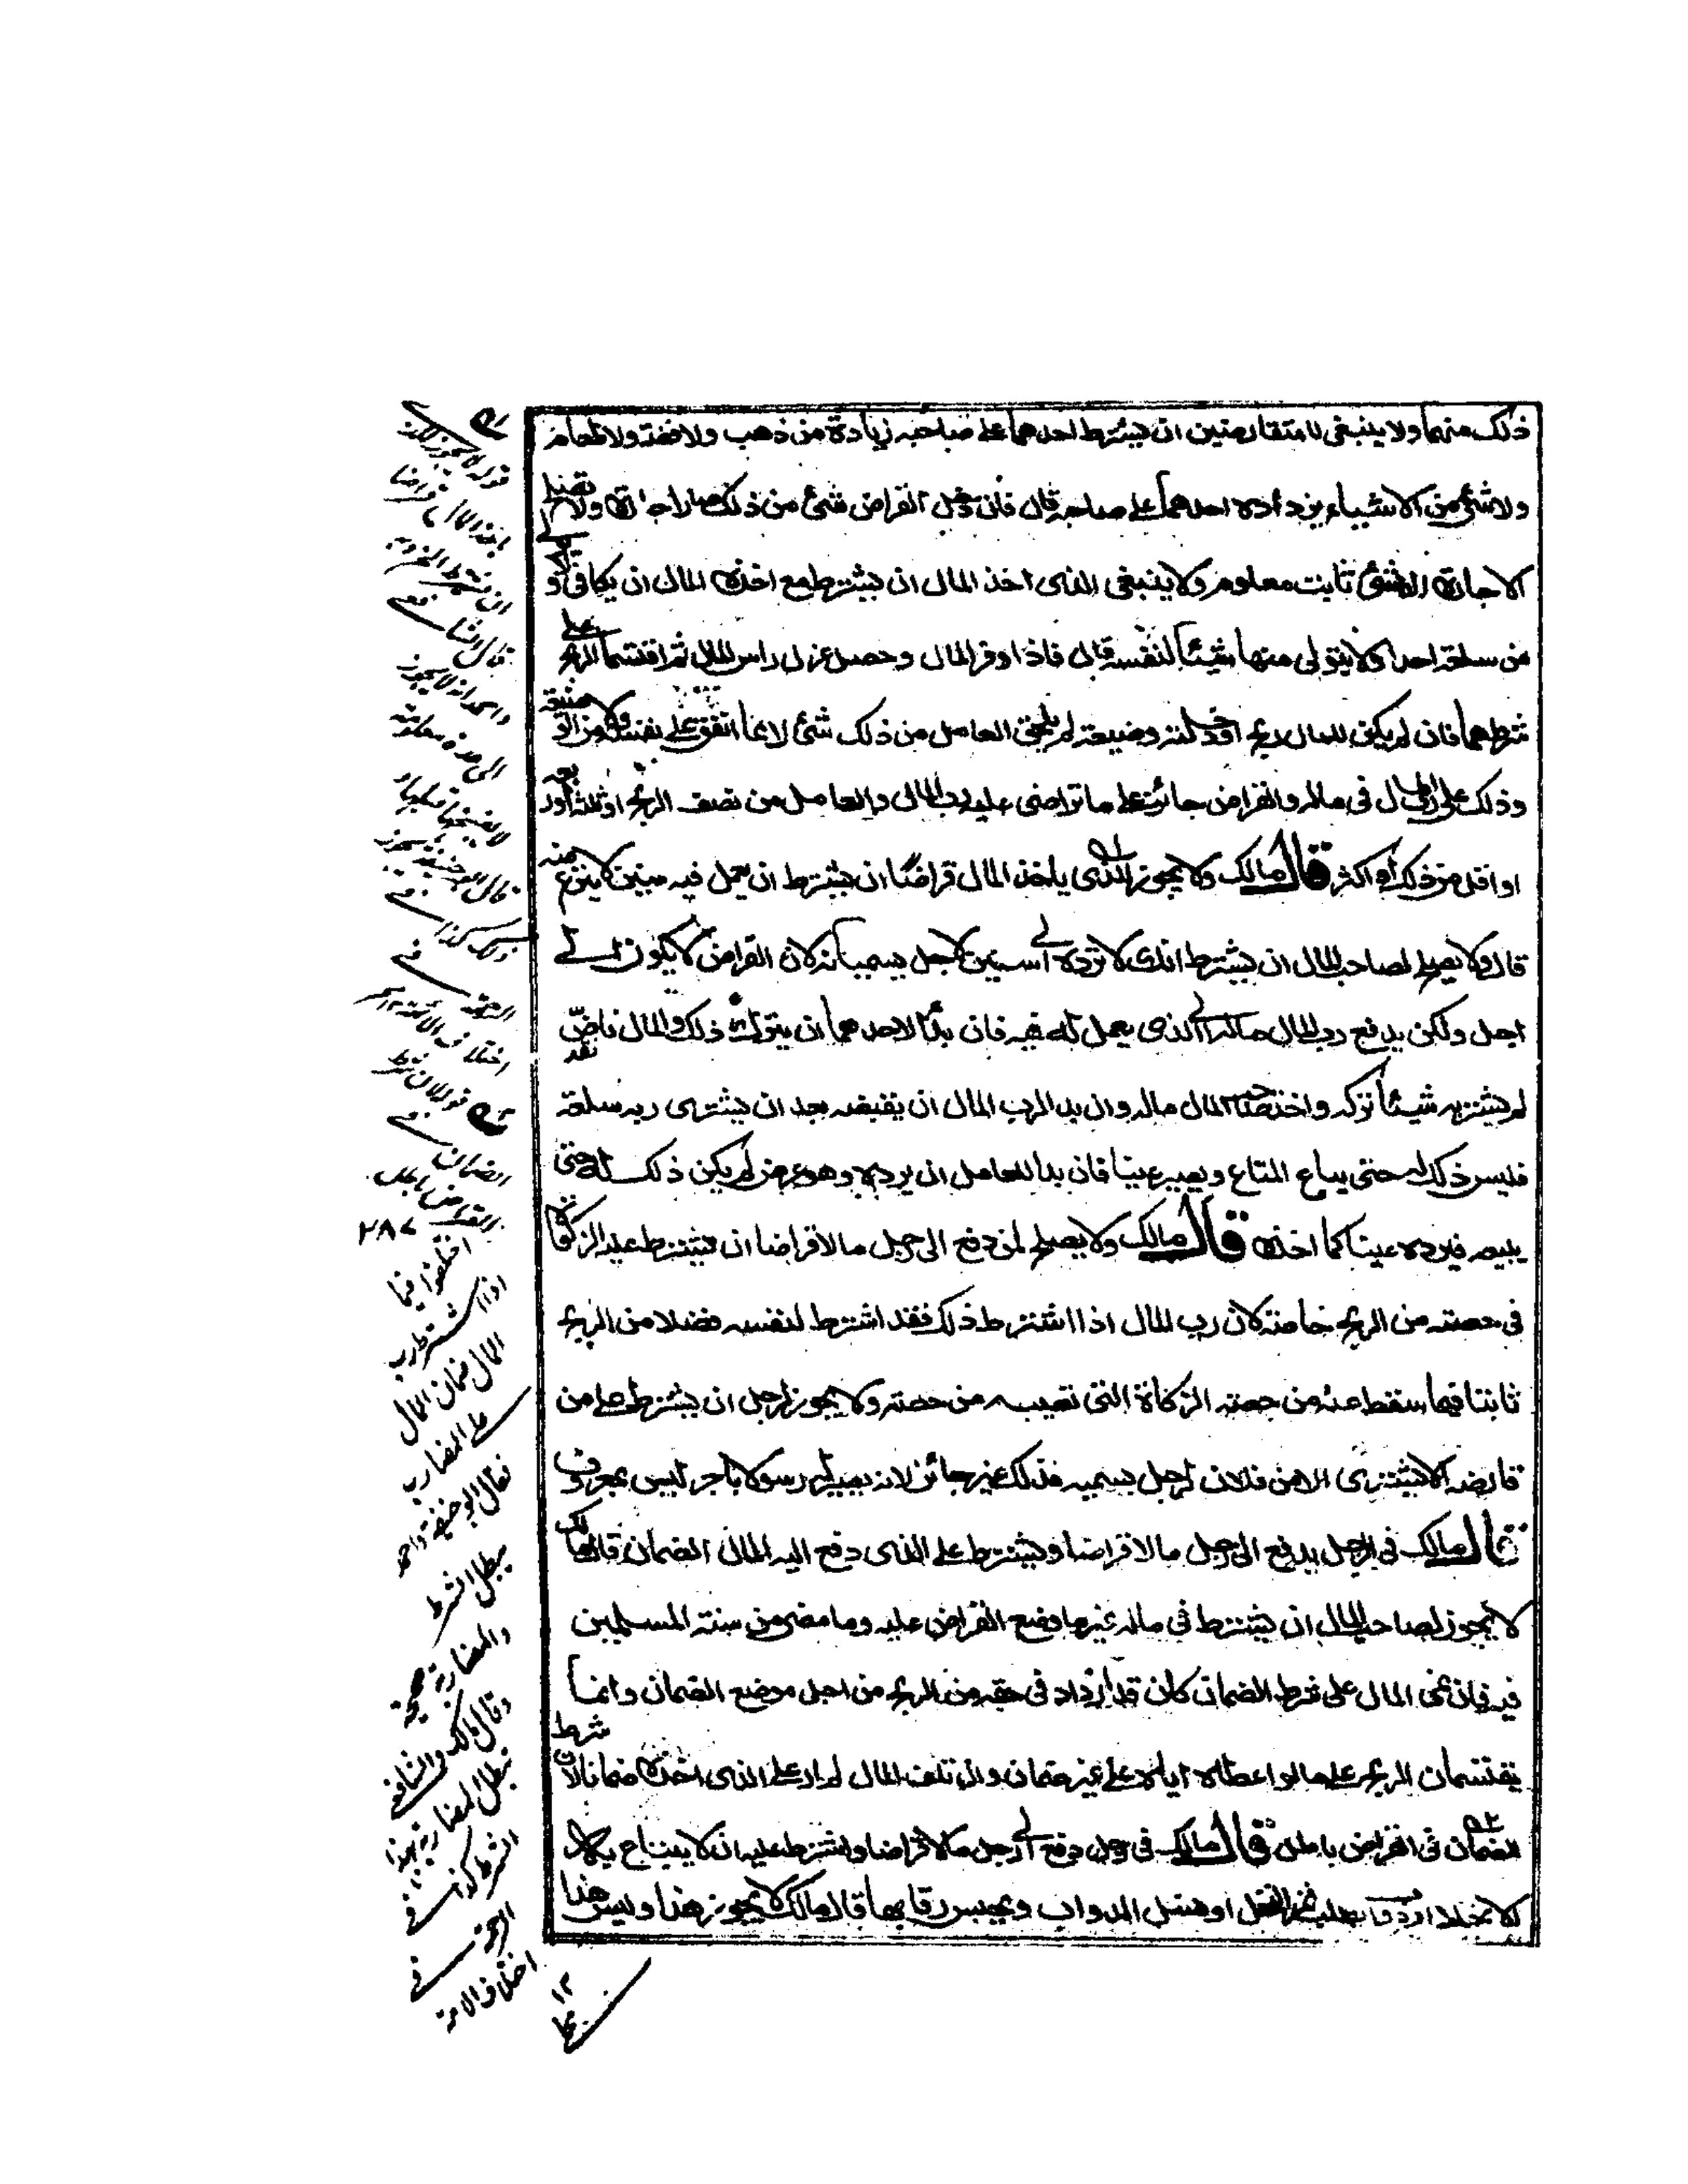 ذلك منهما ولا ينبغي للمتقارضين ان يشترط احدهما على صاحبه زيادة من ذهب ولا فضة ولا طعام
ولا شئ من الاشياء يزداده احدهما على صاحبه قال فان دخل القراض شئ من ذلك صار اجارة ولا تصلح
الاجارة الا بشئ ثابت معلوم ولا ينبغي للذى اخذ المال ان يشترط مع اخذه المال ان يكافى ولا
من سلعته احدا ولا يتولى منها شيئا لنفسه قال فاذا وفر المال وحصل عزل راس المال ثم اقتسما الربح على
شرطهما فان لم يكن للمال ربح او دخلته وضيعة لم يلحق العامل من ذلك شئ لا مما انفق على نفسه ولا من الوضيعة
وذلك على رب المال في ماله والقراض جائز على ما تراضى عليه رب المال والعامل من نصف الربح او ثلثه او ربعه
او اقل من ذلك او اكثر قال مالك ولا يجوز للذى ياخذ المال قراضا ان يشترط ان يعمل فيه سنين لا ينزع منه
قال ولا يصلح لصاحب المال ان يشترط انك لا ترده الى سنين لاجل يسميانه لان القراض لا يكون الى
اجل ولكن يدفع رب المال ماله الى الذى يعمل له فيه فان بدا لاحدهما ان يترك ذلك والمال ناض
نقد
لم يشتر به شيئا تركه واخذ صاحب المال ماله وان بدا لرب المال ان يقبضه بعد ان يشترى به سلعة
فليس ذلك له حتى يباع المتاع ويصير عينا فان بدا للعامل ان يرده وهو عرض لم يكن ذلك له حتى
يبيعه فيرده عينا كما اخذه قال مالك ولا يصلح لمن دفع الى رجل مالا قراضا ان يشترط عليه الزكوة
في حصته من الربح خاصة لان رب المال اذا اشترط ذلك فقد اشترط لنفسه فضلا من الربح
ثابتا فيما سقط عنه من حصة الزكاة التى تصيبه من حصته ولا يجوز لرجل ان يشترط على من
قارضه الا يشترى الا من فلان لرجل يسميه فذلك غير جائز لانه يصير له رسولا باجر ليس بمعروف
قال مالك في الرجل يدفع الى رجل مالا قراضا ويشترط على الذى دفع اليه المال الضمان قال مالك
لا يجوز لصاحب المال ان يشترط في ماله غير ما وضع القراض عليه وما مضى من سنة المسلمين
فيه فان نمى المال على شرط الضمان كان قد ازداد في حقه من الربح من اجل موضع الضمان وانما
يقتسمان الربح على ما لو اعطاه اياه على غير ضمان وان تلف المال لم ار على الذى اخذه ضمانا لان شرط
الضمان في القراض باطل قال مالك في رجل دفع الى رجل مالا قراضا واشترط عليه ان لا يبتاع به الا
نخلا او دوابا يطلب ثمر النخل او نسل الدواب ويحبس رقابها قال مالك لا يجوز هذا وليس هذا
قوله لا يجوز للذى
ياخذ المال قراضا
قال الشافعى
واحمد انه لا يجوز
الى مدة معلومة
قال ابو حنيفة يجوز
الرحمة في
اختلاف الائمة
قوله لان شرط
الضمان في
القراض باطل
٢٨٧
اختلفوا فيما
اذا اشترط رب
المال ضمان المال
على المضارب
فقال ابو حنيفة واحمد
يبطل الشرط
والمضاربة صحيحة
وقال مالك والشافعى
تبطل المضاربة بهذا
الشرط كذا في
الرحمة في
اختلاف الامة
١٢